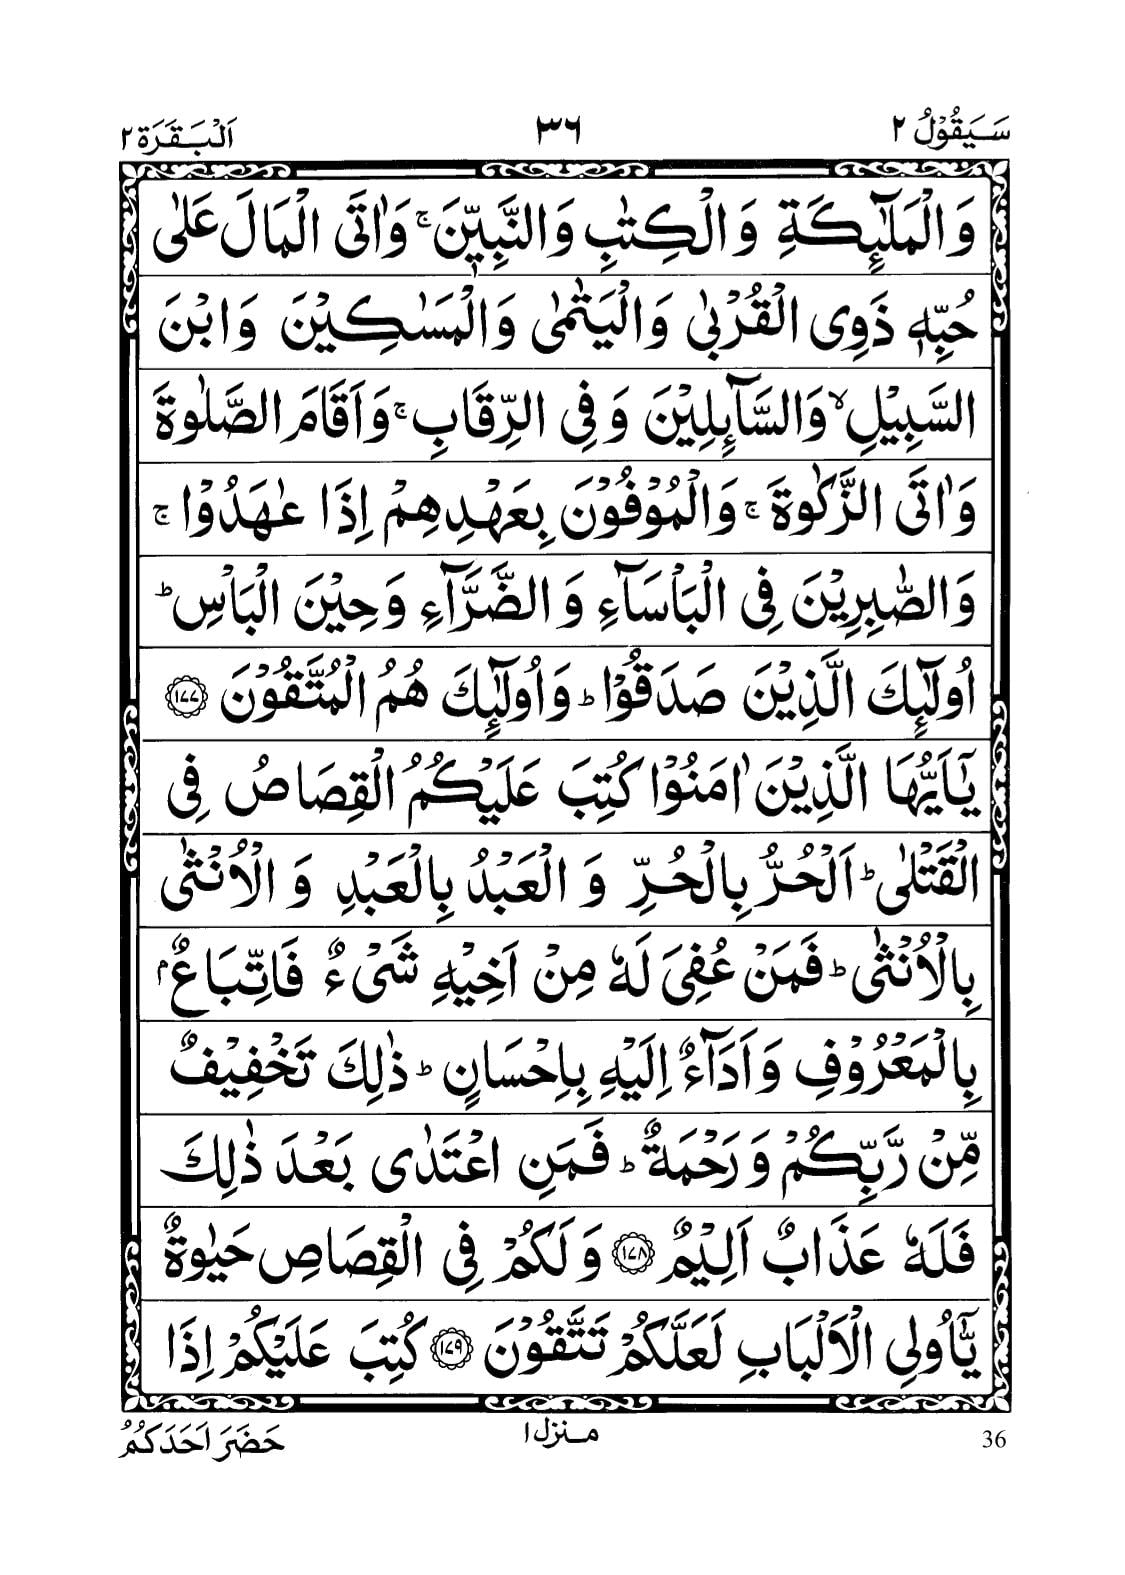 سَيَقُوْلُ ٢
٣٦
اَلْبَقَرَة ٢
وَالْمَلٰٓئِكَةِ وَالْكِتٰبِ وَالنَّبِيّٖنَ ۚ وَاٰتَى الْمَالَ عَلٰى
حُبِّهٖ ذَوِى الْقُرْبٰى وَالْيَتٰمٰى وَالْمَسٰكِيْنَ وَابْنَ
السَّبِيْلِ ۙ وَالسَّآئِلِيْنَ وَفِى الرِّقَابِ ۚ وَاَقَامَ الصَّلٰوةَ
وَاٰتَى الزَّكٰوةَ ۚ وَالْمُوْفُوْنَ بِعَهْدِهِمْ اِذَا عٰهَدُوْا ۚ
وَالصّٰبِرِيْنَ فِى الْبَاْسَآءِ وَالضَّرَّآءِ وَحِيْنَ الْبَاْسِ ؕ
اُولٰٓئِكَ الَّذِيْنَ صَدَقُوْا ؕ وَاُولٰٓئِكَ هُمُ الْمُتَّقُوْنَ ١٧٧
يٰۤاَيُّهَا الَّذِيْنَ اٰمَنُوْا كُتِبَ عَلَيْكُمُ الْقِصَاصُ فِى
الْقَتْلٰى ؕ اَلْحُرُّ بِالْحُرِّ وَالْعَبْدُ بِالْعَبْدِ وَالْاُنْثٰى
بِالْاُنْثٰى ؕ فَمَنْ عُفِىَ لَهٗ مِنْ اَخِيْهِ شَىْءٌ فَاتِّبَاعٌ ۢ
بِالْمَعْرُوْفِ وَاَدَآءٌ اِلَيْهِ بِاِحْسَانٍ ؕ ذٰلِكَ تَخْفِيْفٌ
مِّنْ رَّبِّكُمْ وَرَحْمَةٌ ؕ فَمَنِ اعْتَدٰى بَعْدَ ذٰلِكَ
فَلَهٗ عَذَابٌ اَلِيْمٌ ١٧٨ وَلَكُمْ فِى الْقِصَاصِ حَيٰوةٌ
يّٰۤاُولِى الْاَلْبَابِ لَعَلَّكُمْ تَتَّقُوْنَ ١٧٩ كُتِبَ عَلَيْكُمْ اِذَا
36
منزل ١
حَضَرَ اَحَدَكُمُ